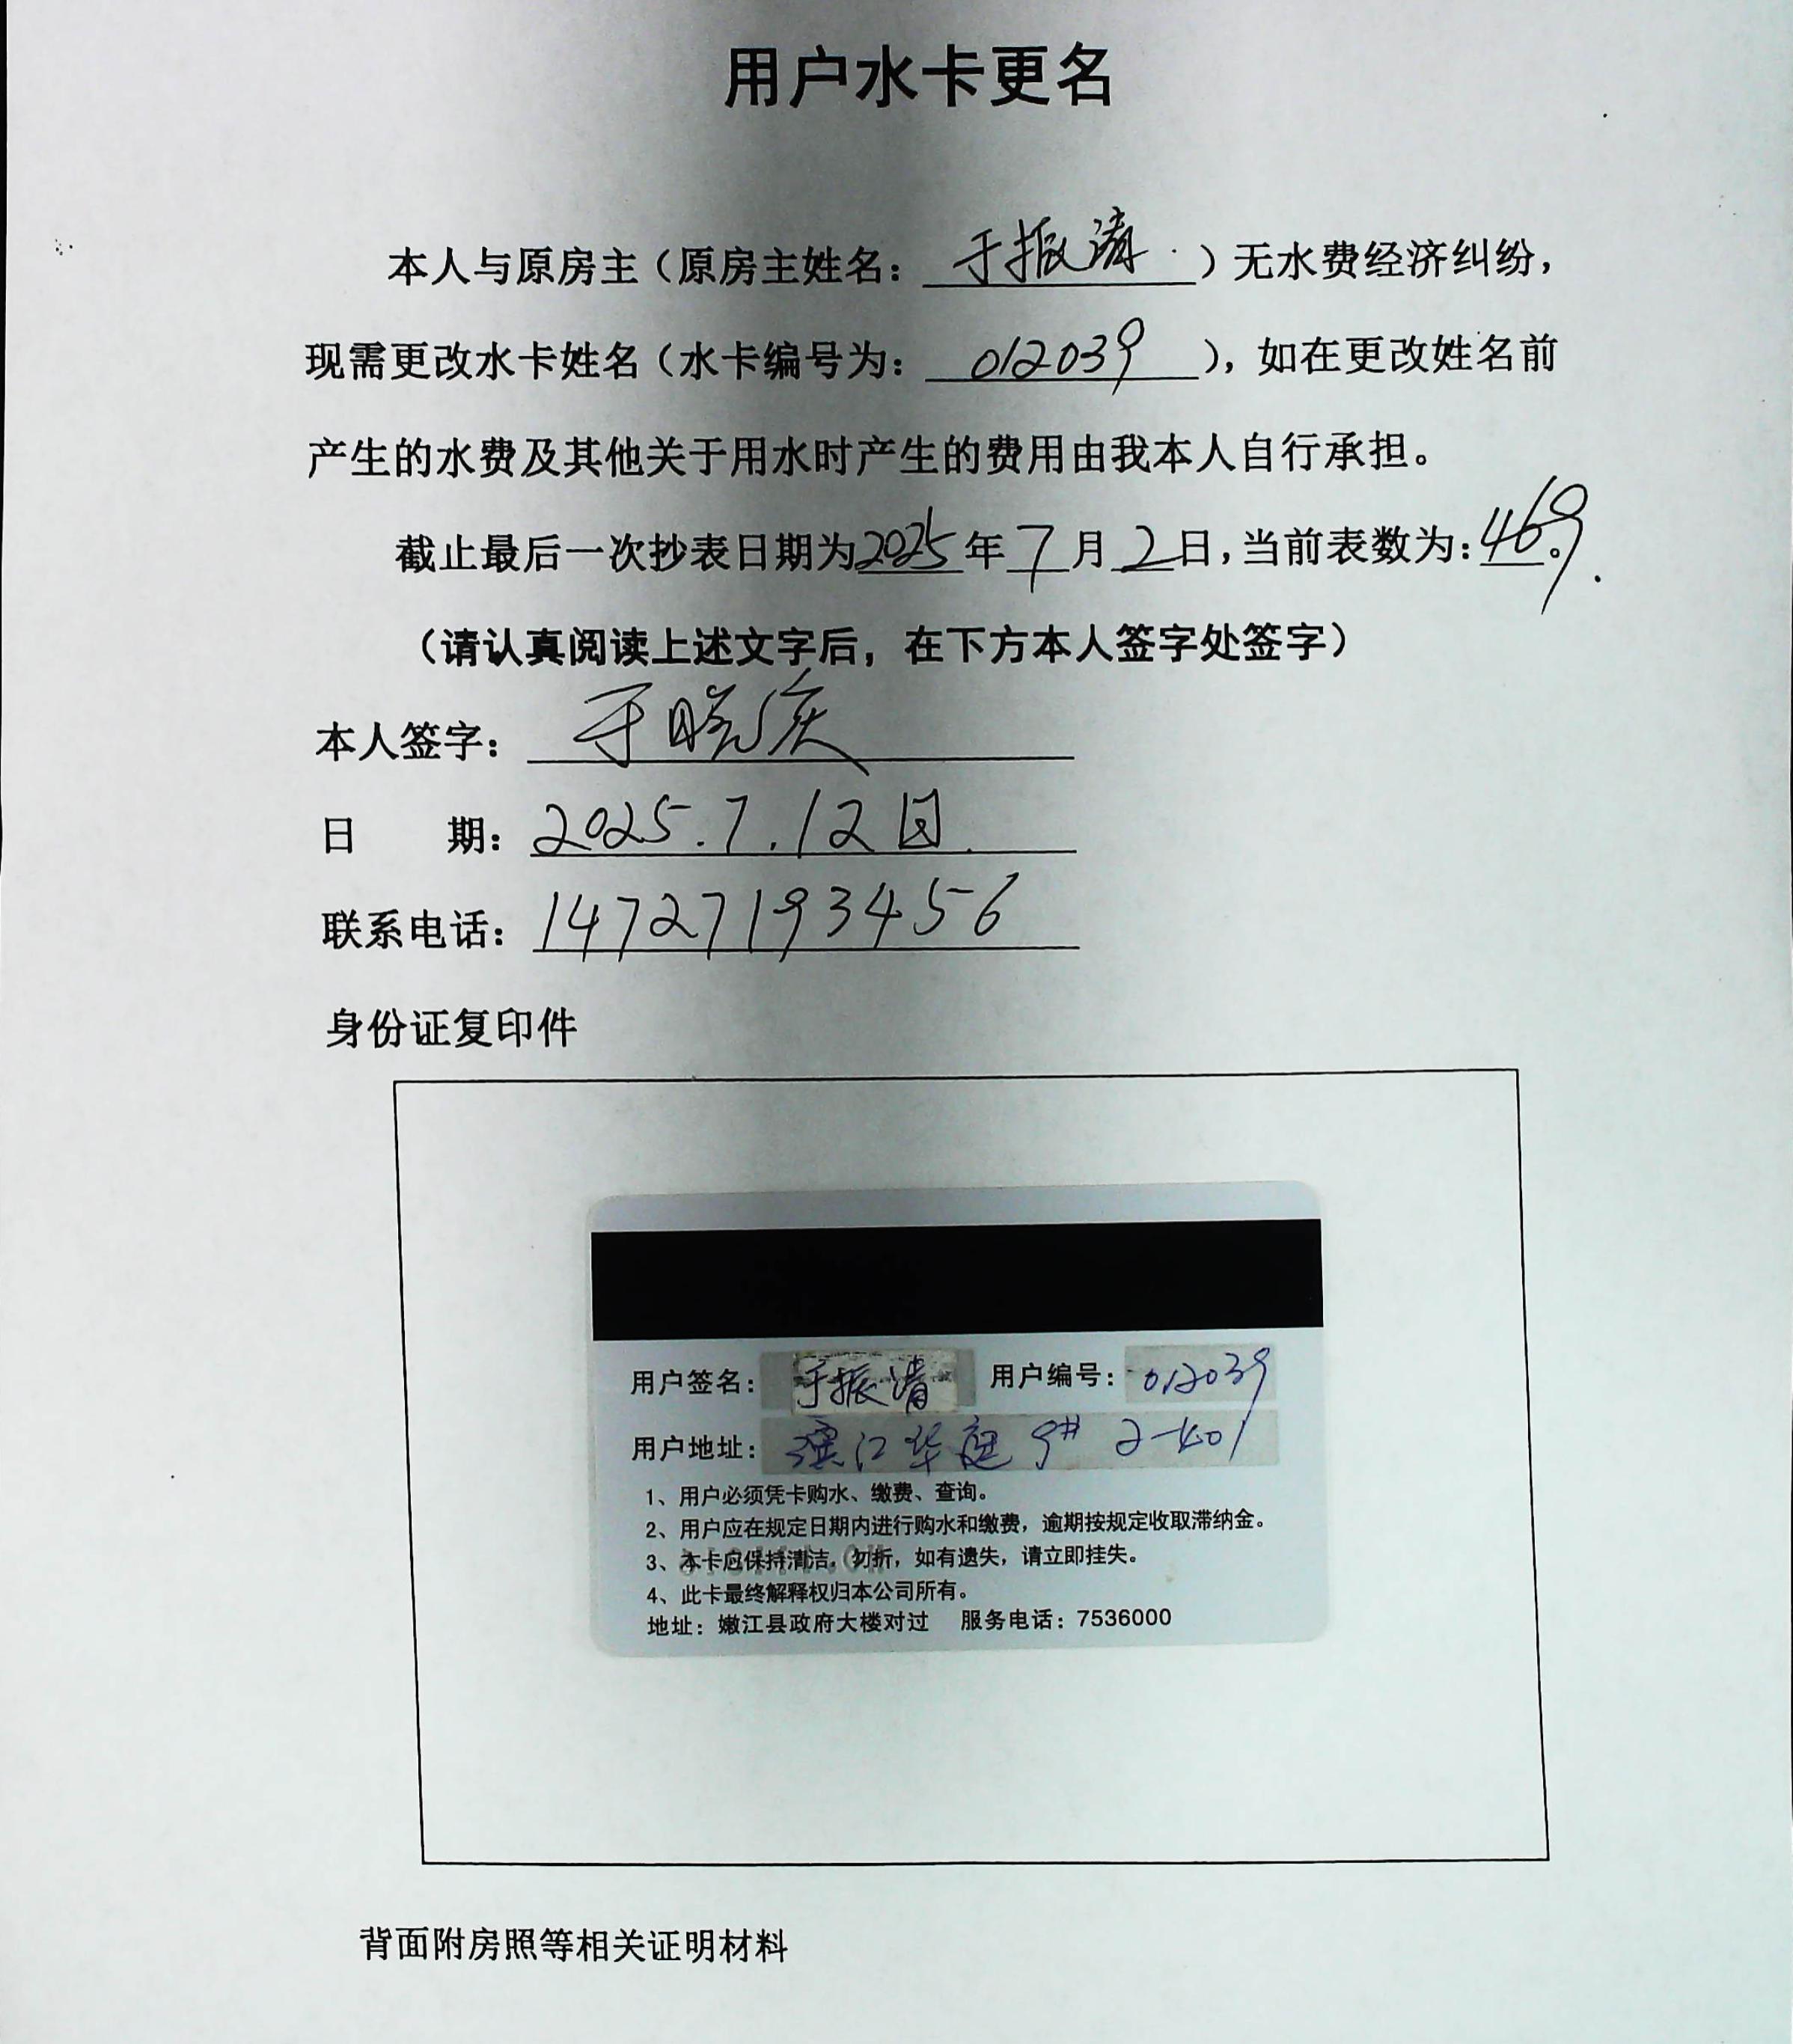 用户水卡更名
本人与原房主（原房主姓名：于振清）无水费经济纠纷，
现需更改水卡姓名（水卡编号为：012039），如在更改姓名前
产生的水费及其他关于用水时产生的费用由我本人自行承担。
截止最后一次抄表日期为2025年7月2日，当前表数为：469。
（请认真阅读上述文字后，在下方本人签字处签字）
本人签字：于晓庆
日 期：2025.7.12日.
联系电话：14727193456
身份证复印件
用户签名：于振清 用户编号：012039
用户地址：滨江华庭9# 2-401
1、用户必须凭卡购水、缴费、查询。
2、用户应在规定日期内进行购水和缴费，逾期按规定收取滞纳金。
3、本卡应保持清洁，勿折，如有遗失，请立即挂失。
4、此卡最终解释权归本公司所有。
地址：嫩江县政府大楼对过 服务电话：7536000
背面附房照等相关证明材料